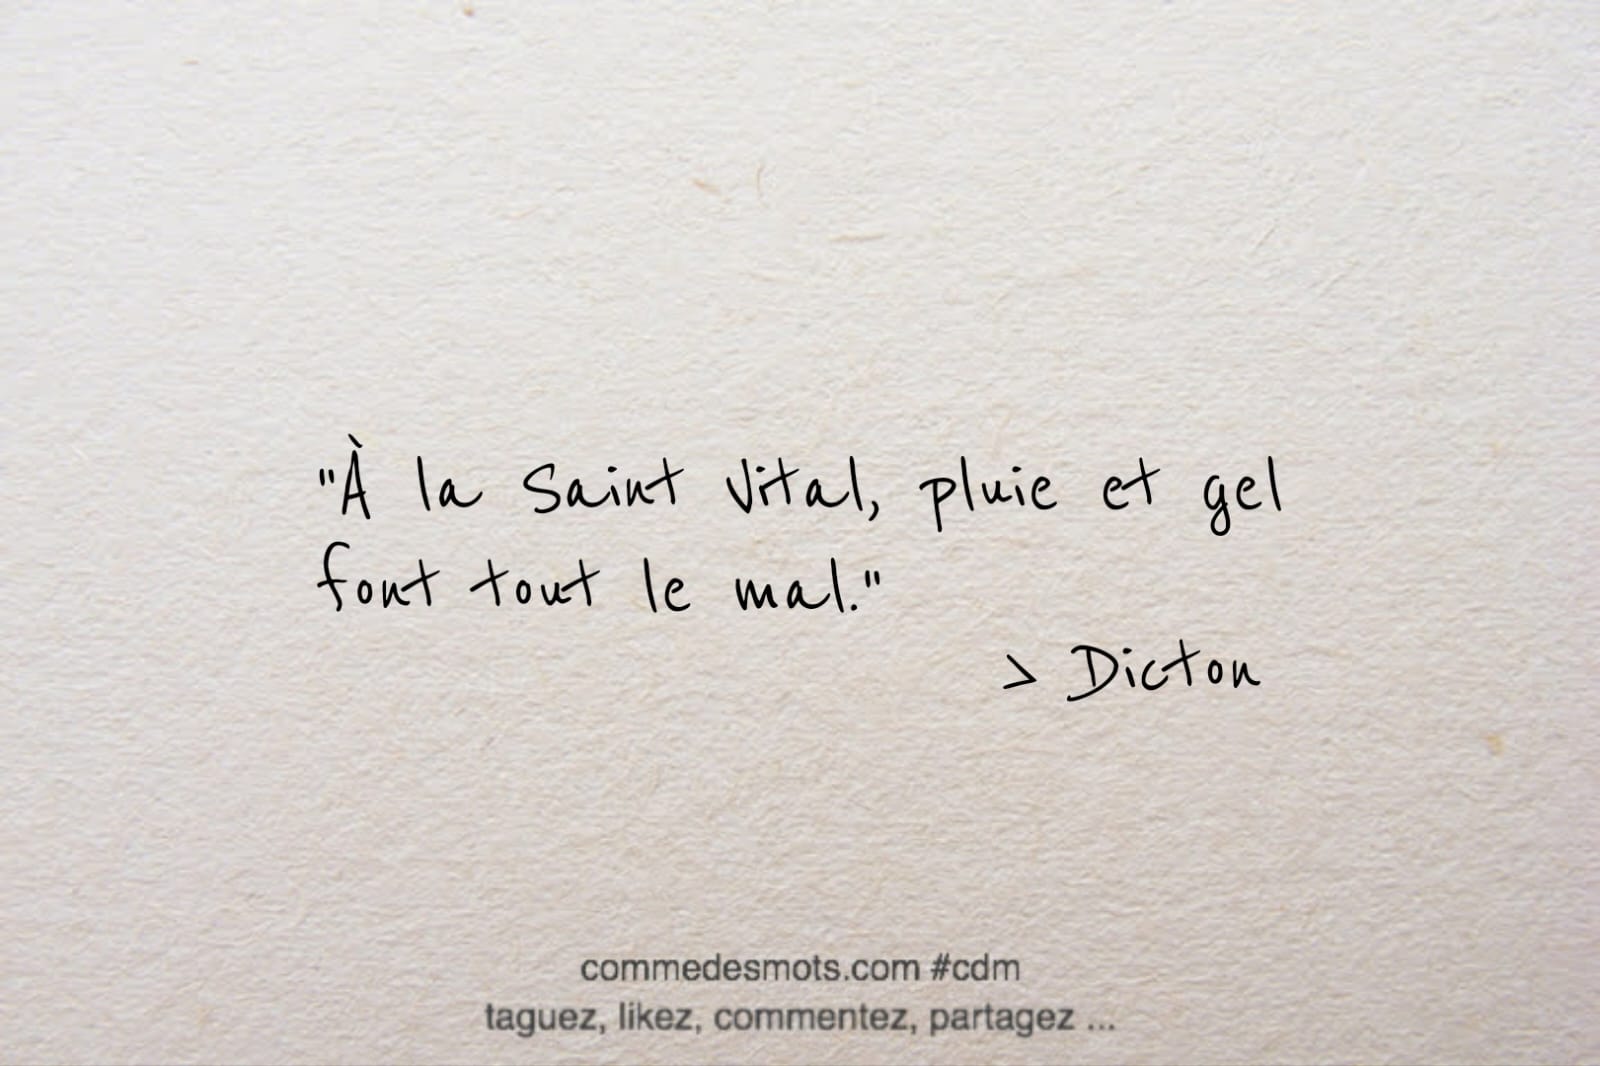 "À la Saint Vital, pluie et gel
font tout le mal."
> Dicton
commedesmots.com #cdm
taguez, likez, commentez, partagez ...